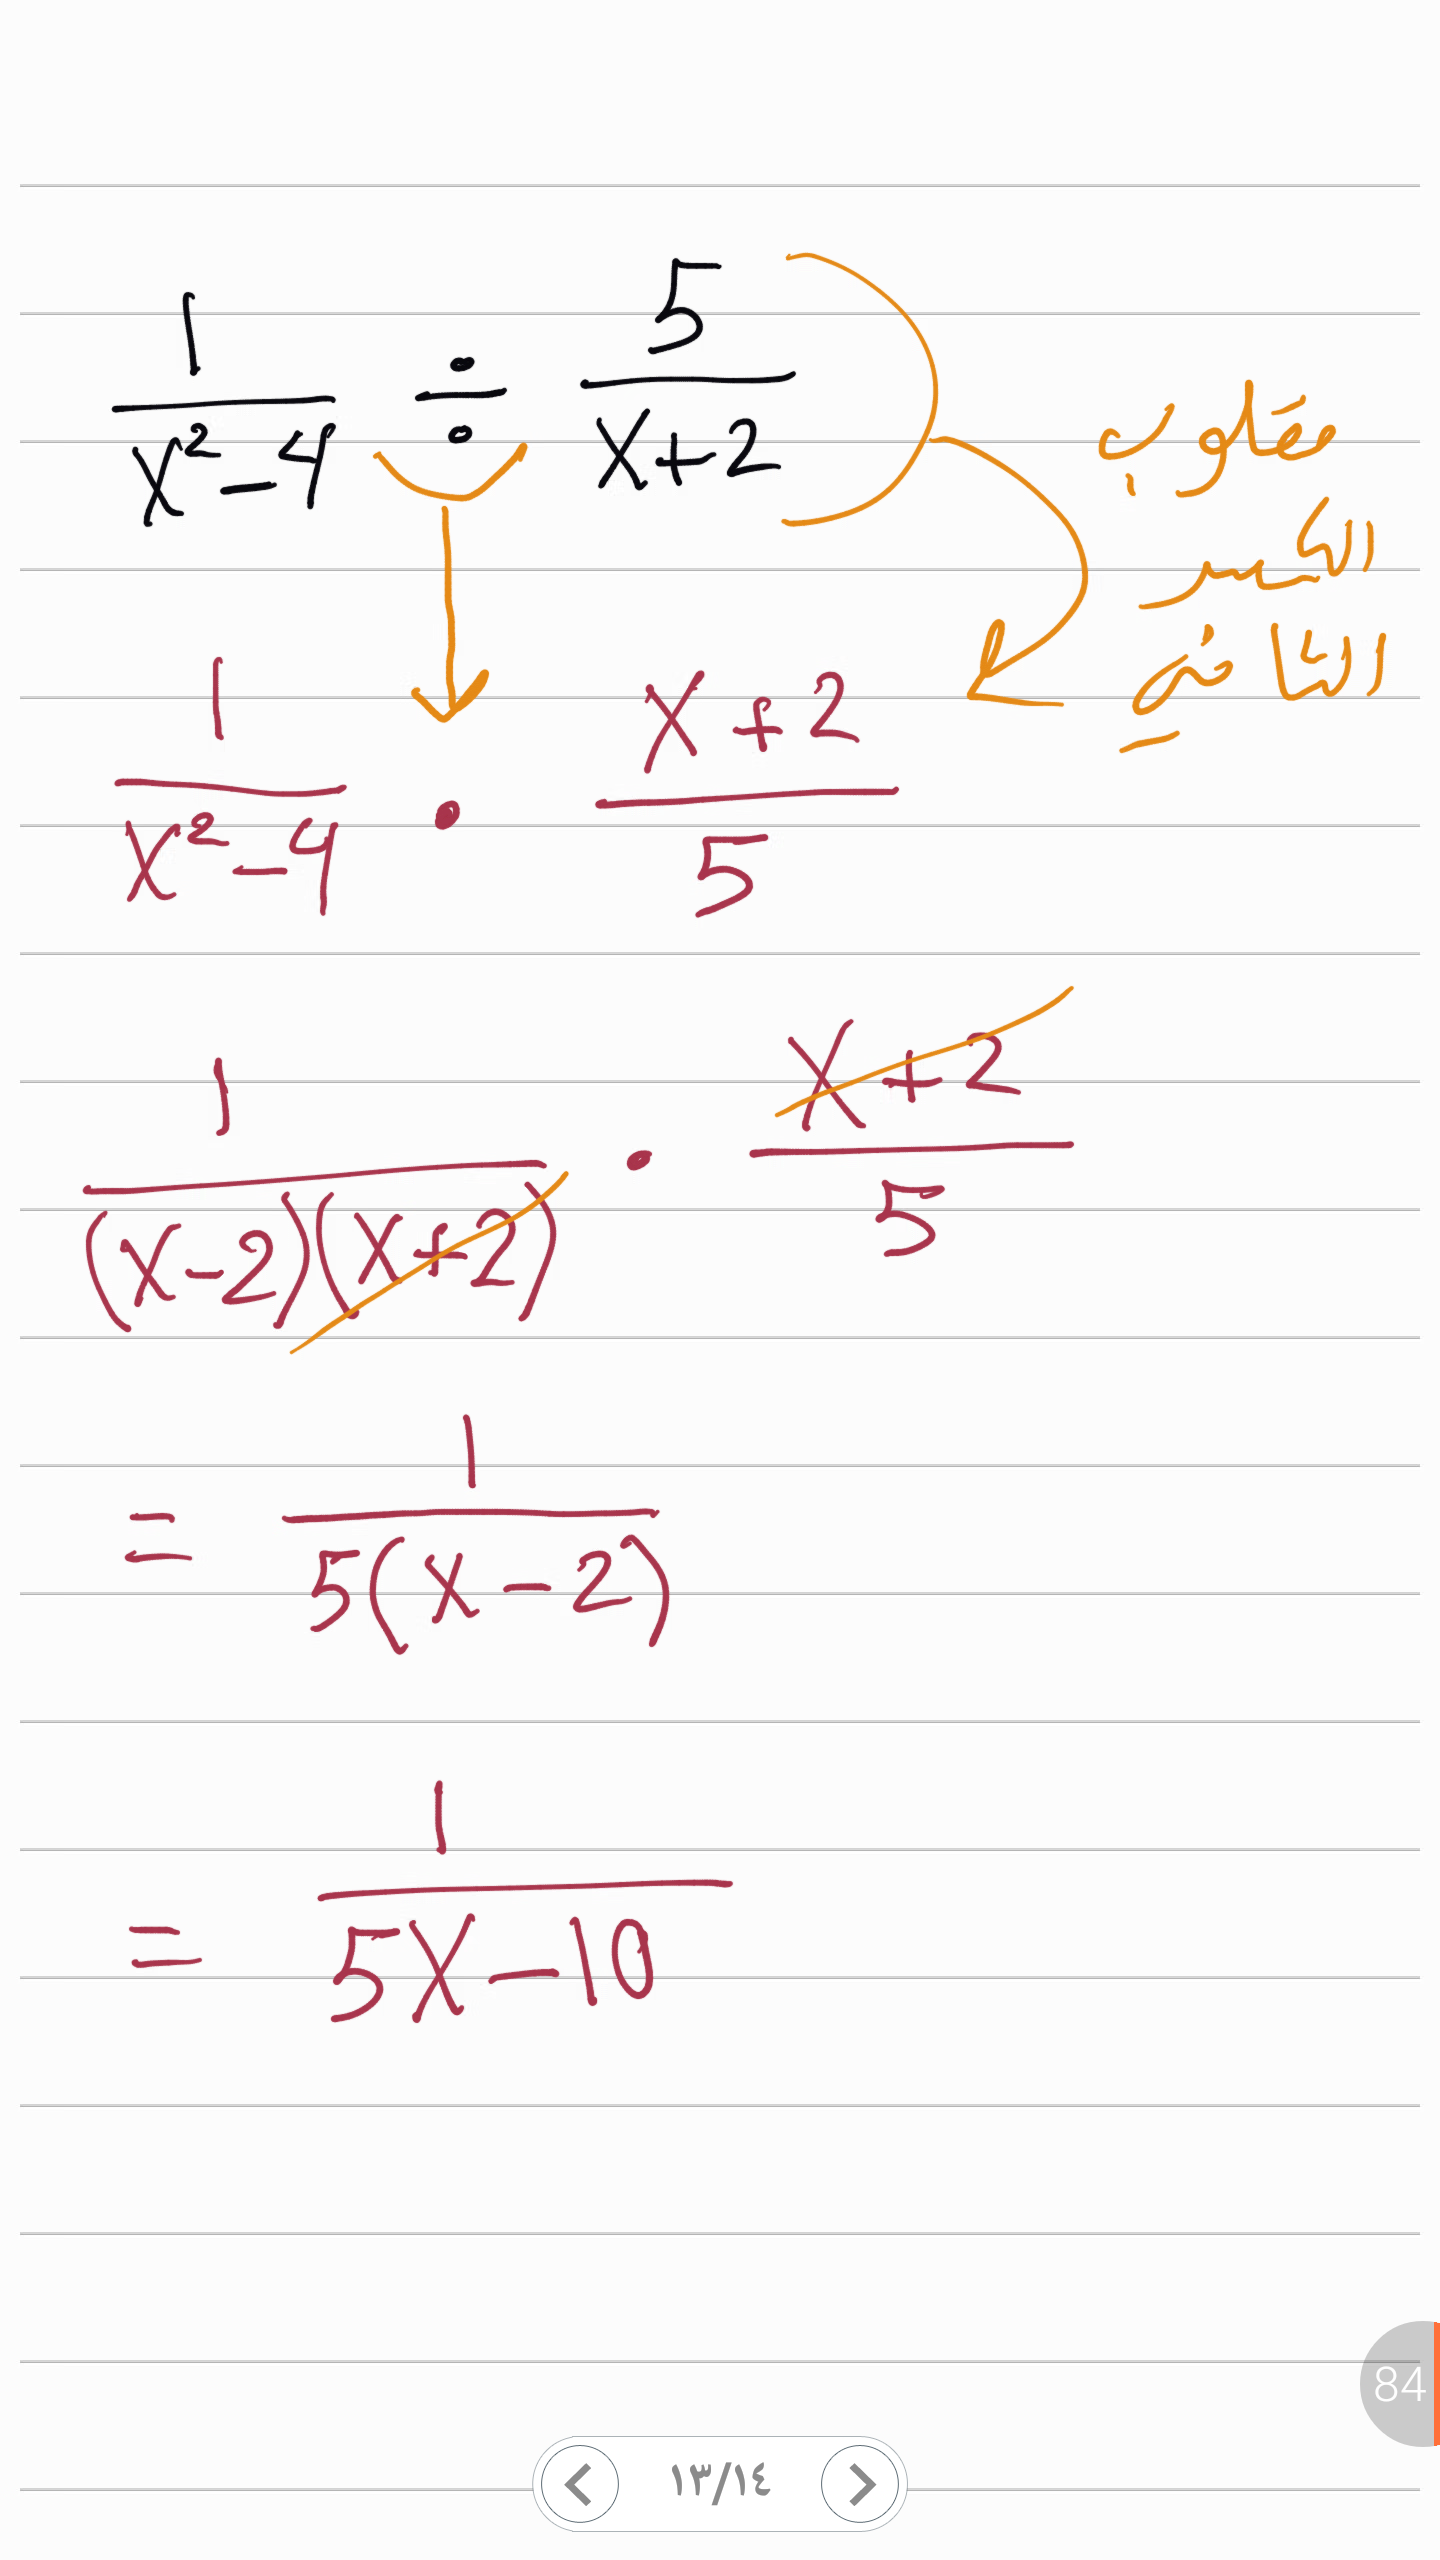 1/(x²-4) ÷ 5/(x+2)
مقلوب
الكسر
الثاني
1/(x²-4) • (x+2)/5
1/((x-2)(x+2)) • (x+2)/5
= 1/(5(x-2))
= 1/(5x-10)
84
١٣/١٤